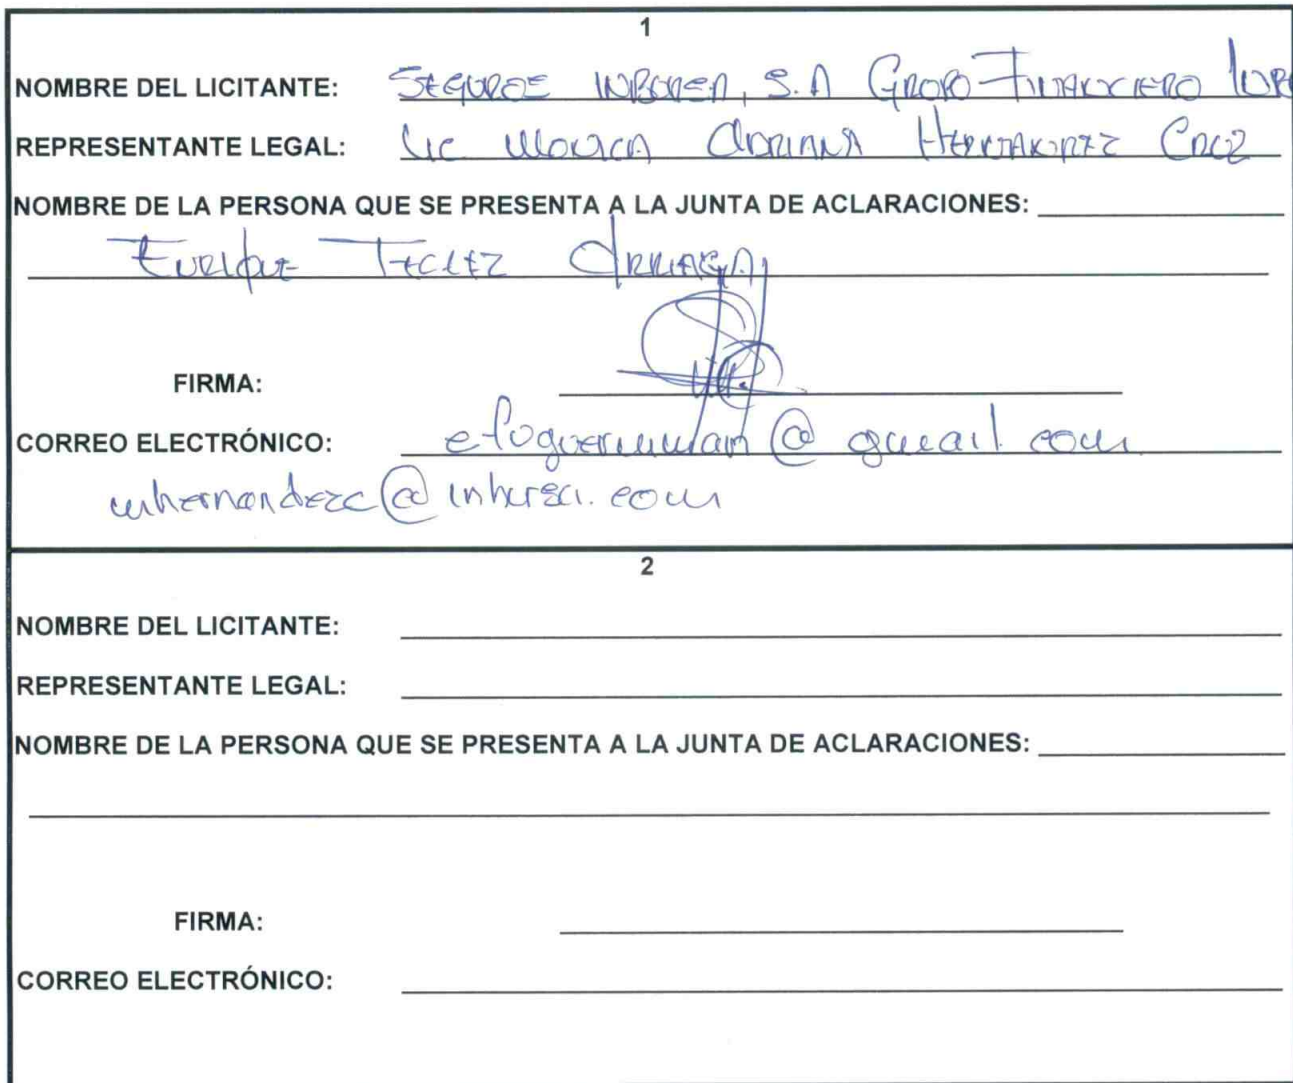 1
NOMBRE DEL LICITANTE: SEGUROS INBURSA, S.A GRUPO FINANCIERO
REPRESENTANTE LEGAL: Lic MONICA ADRIANA HERNANDEZ CRUZ
NOMBRE DE LA PERSONA QUE SE PRESENTA A LA JUNTA DE ACLARACIONES:
ENRIQUE TELLEZ ARRIAGA
FIRMA:
CORREO ELECTRÓNICO: @ gmail com
mhernandezc@inbursa.com
2
NOMBRE DEL LICITANTE:
REPRESENTANTE LEGAL:
NOMBRE DE LA PERSONA QUE SE PRESENTA A LA JUNTA DE ACLARACIONES:
FIRMA:
CORREO ELECTRÓNICO: